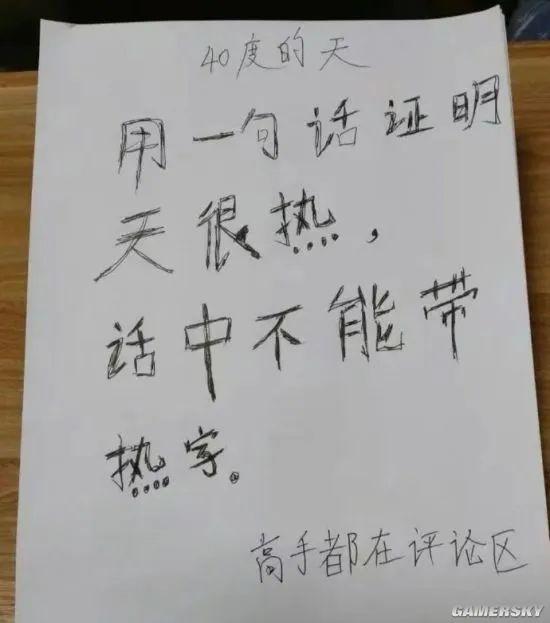 40度的天
用一句话证明
天很热，
话中不能带
热字。
高手都在评论区
GAMERSKY